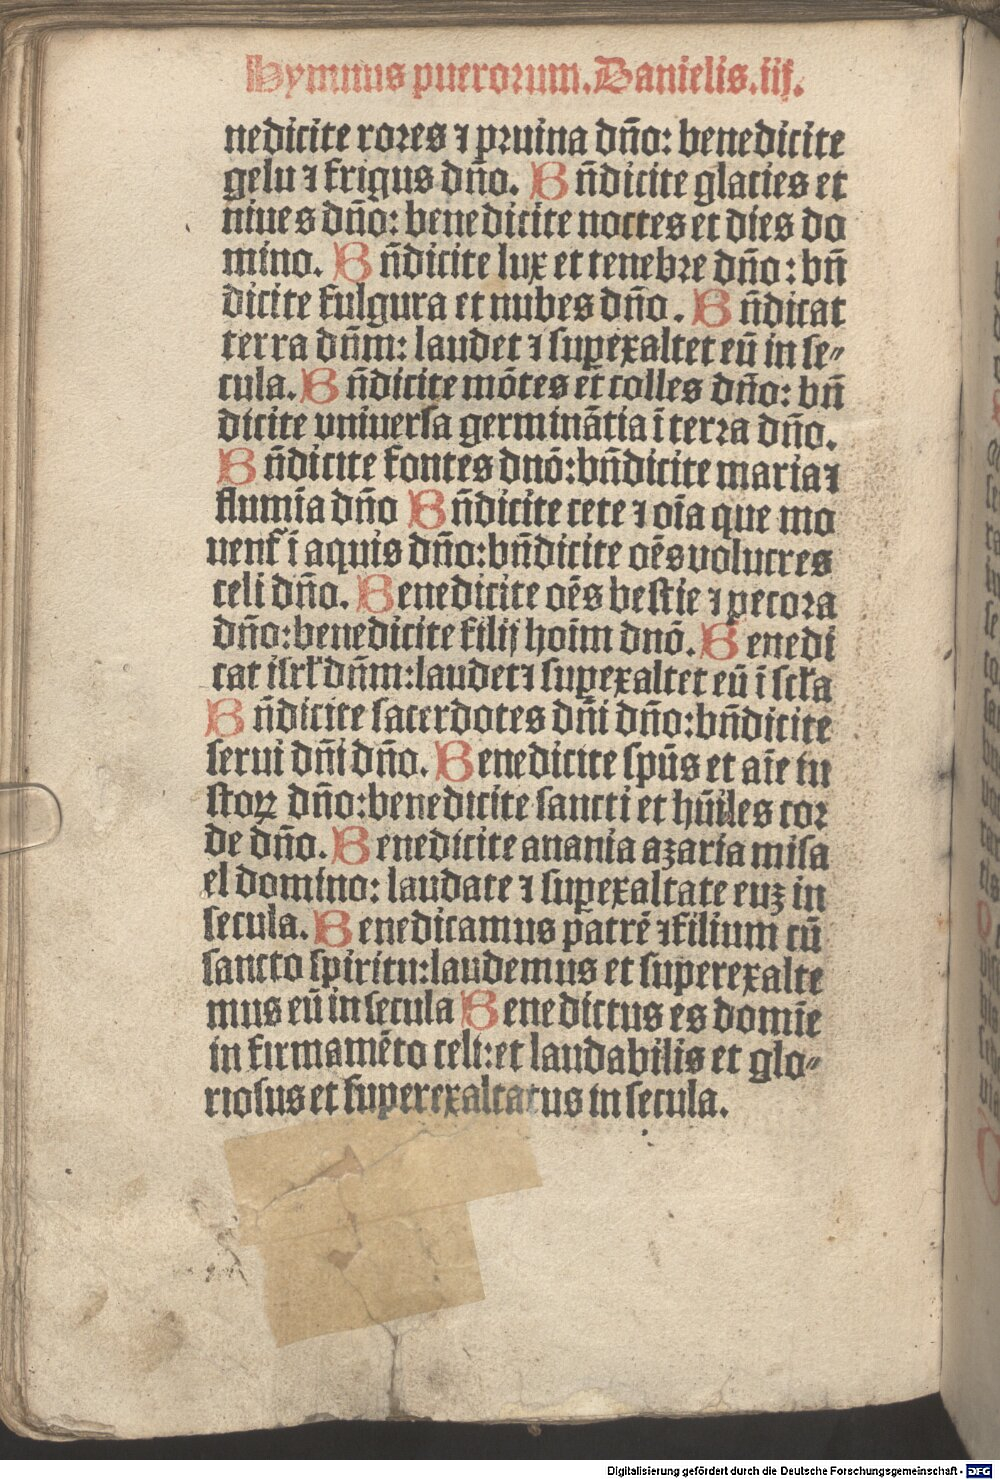 Hymnus puerorum. Danielis. iij.
nedicite rores ⁊ pruina dn̄o: benedicite
gelu ⁊ frigus dn̄o. Bn̄dicite glacies et
niues dn̄o: benedicite noctes et dies do
mino. Bn̄dicite lux et tenebre dn̄o: bn̄
dicite fulgura et nubes dn̄o. Bn̄dicat
terra dn̄m: laudet ⁊ suꝑexaltet eū in se⸗
cula. Bn̄dicite mōtes et colles dn̄o: bn̄
dicite vniuersa germinātia ī terra dn̄o.
Bn̄dicite fontes dnō: bn̄dicite maria ⁊
flumīa dn̄o Bn̄dicite cete ⁊ oīa que mo
uenť ī aquis dn̄o: bn̄dicite oēs volucres
celi dn̄o. Benedicite oēs bestie ⁊ pecora
dn̄o: benedicite filij hoīm dnō. Benedi
cat isrł dn̄m: laudet ⁊ suꝑexaltet eū ī scła
Bn̄dicite sacerdotes dn̄i dn̄o: bn̄dicite
serui dn̄i dn̄o. Benedicite spūs et aīe iu
stoꝝ dn̄o: benedicite sancti et hūiles cor
de dn̄o. Benedicite anania azaria misa
el domino: laudate ⁊ suꝑexaltate euꝫ in
secula. Benedicamus patrē ⁊ filium cū
sancto spiritu: laudemus et superexalte
mus eū in secula Benedictus es domīe
in firmamēto celi: et laudabilis et glo⸗
riosus et superexaltatus in secula.
Digitalisierung gefördert durch die Deutsche Forschungsgemeinschaft - DFG